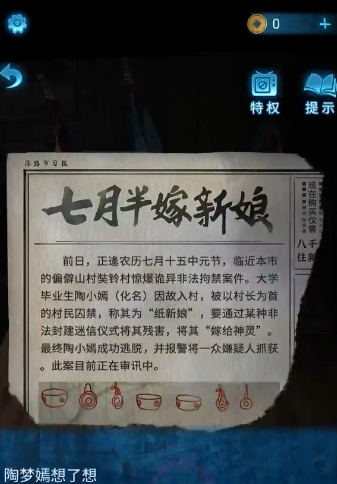 0
+
特权
提示
洛路市日报
七月半嫁新娘
现在购买仅需
八千
住
前日，正逢农历七月十五中元节，临近本市
的偏僻山村奘铃村惊爆诡异非法拘禁案件。大学
毕业生陶小嫣（化名）因故入村，被以村长为首
的村民囚禁，称其为“纸新娘”，要通过某种非
法封建迷信仪式将其残害，将其“嫁给神灵”。
最终陶小嫣成功逃脱，并报警将一众嫌疑人抓获
。此案目前正在审讯中。
陶梦嫣想了想